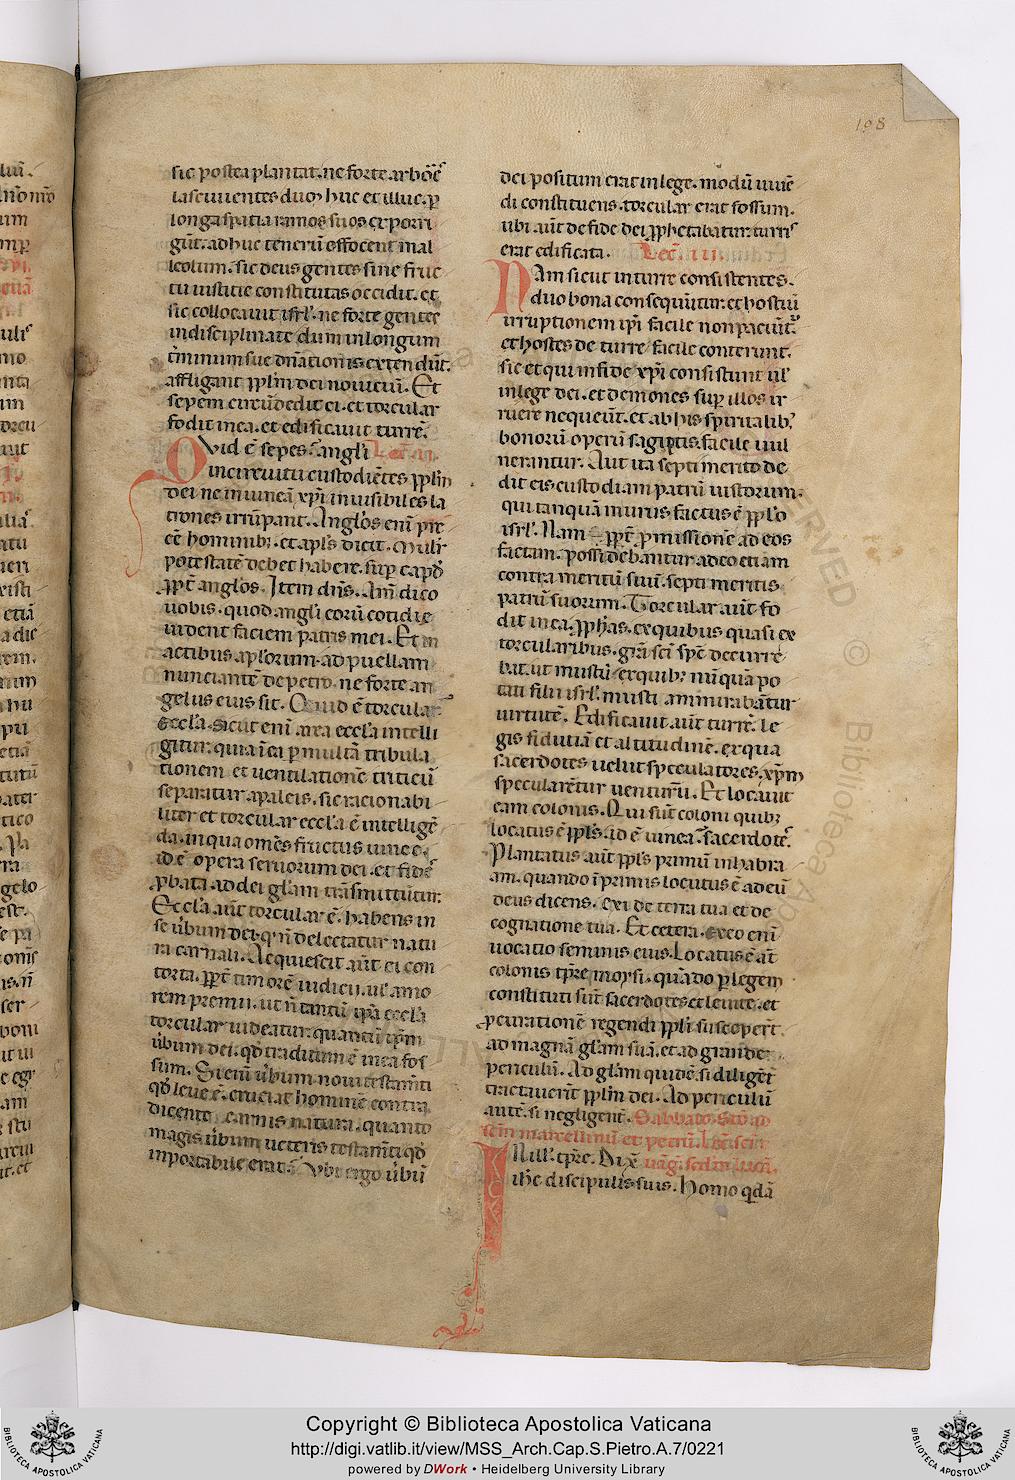 198
sic postea plantat. ne forte arbōēs
lasciuientes duꝫ huc et illuc. ꝑ
longa spatia ramos suos ex porri
gūt. adhuc tenerū offocent mal
leolum. sic deus gentes sine fruc
tu iustitie constitutas occidit. et
sic collocauit isrl̄. ne forte gentes
indisciplinate dum in longum
t̄minum sue dn̄ationis extendūt.
affligant pp̄lm dei nouicuū. Et
sepem circūdedit ei. et torcular
fodit in ea. et edificauit turrē.
Quid ē sepes. angl̄i Lec̄. ii.
in circuitu custodiētes pp̄lm
dei ne in uineā xp̄i inuisibiles la
trones irrūpant. Anglōs enī pre
eē hominibꝫ. et apl̄s dicit. Muliꝛ
potestatē debet habere. suꝑ capd̄
ꝓpt̄ anglōs. Item dn̄s. Am̄ dico
uobis. quod angl̄i eorū cotidie
uident faciem patris mei. Et in
actibus apl̄orum. ad puellam
nunciantē de petro. ne forte an
gelus eius sit. Quid ē torcular
eccl̄a. sicut enī area eccl̄a intelli
gitur. quia ī ea ꝑ multā tribula
tionem et uentilationē triticū
separatur a paleis. sic racionabi
liter et torcular eccl̄a ē intelligē
da. in qua omēs fructus uinee.
id ē opera seruorum dei. et fidēs
ꝓbata. ad dei gl̄am trāsmittūtur.
Eccl̄a aūt torcular ē. habens in
se ūbum dei. q̄ n̄ delectatur natu
ra carnali. Acquiescit aūt ei con
torta. ꝓpt̄ timorē iudicii. ul̄ amo
rem premii. ut n̄ tantū ip̄a eccl̄a
torcular uideatur. quantū ip̄m
ūbum dei. qd̄ traditum ē in ea fos
sum. Si enī ūbum noui testam̄ti
qd̄ leue ē. cruciat hominē contra
dicente carnis natura. quanto
magis ūbum ueteris testam̄ti qd̄
inportabile erat. Vbi ergo ūbū
dei positum erat in lege. modū uiuē
di constituens. torcular erat fossum.
ubi aūt de fide dei ꝓphetabatur. turris
erat edificata. Lec̄. iii.
Nam sicut in turre consistentes.
duo bona consequūtur. et hostiū
irruptionem ip̄i facile non paciūt̄.
et hostes de turre facile conterunt.
sic et qui in fide xp̄i consistunt ul̄
in lege dei. et demones suꝑ illos ir
ruere nequeūt. et ab his spiritalibꝫ
bonorū operū sagiptis. facile uul
nerantur. Aut ita septi merito de
dit eis custodiam patrū iustorum.
qui tanquā murus factus ē pp̄lo
isrl̄. Nam ꝓpt̄ ꝓmissionē ad eos
factam. possidebantur adeo etiam
contra meritū suū. septi meritis
patrū suorum. Torcular aūt fo
dit in ea. ꝓph̄as. ex quibus quasi ex
torcularibus. gr̄a sc̄i spc̄ decurre
bat. ut mustū. ex quibꝫ nūquā po
tati filii isrl̄. musti ammirabātur
uirtutē. Edificauit aūt turrē. le
gis fidutiā et altitudinē. ex qua
sacerdotes uelut speculatores. xp̄m
specularētur uenturū. Et locauit
eam colonis. Qui sūt coloni quibꝫ
locatus ē pp̄ls. id ē uinea. sacerdotēs.
Plantatus aūt pp̄ls primū in habra
am. quando ī primis locutus ē ad eū
deus dicens. exi de terra tua et de
cognatione tua. Et cetera. exeo enī
uocatio seminis eius. Locatus ē at̄
colonis tp̄re moysi. quādo ꝑ legem
constituti sūt sacerdotes et leuite. et
ꝓcurationē regendi pp̄li susceper̄t.
ad magnā gl̄am suā. et ad grande
periculū. Ad gl̄am quidē. si diligēt̄
tractauerūt pp̄lm dei. Ad periculū
autē. si negligent̄. Sabbato. Stō. ad
sc̄m marcellinū et petrū.
IN ill. tp̄re. Dix̄ uāg. scdm lucā.
ih̄c discipulis suis. homo qdā
Copyright © Biblioteca Apostolica Vaticana
http://digi.vatlib.it/view/MSS_Arch.Cap.S.Pietro.A.7/0221
powered by DWork • Heidelberg University Library
BIBLIOTECA APOSTOLICA VATICANA
BIBLIOTECA APOSTOLICA VATICANA